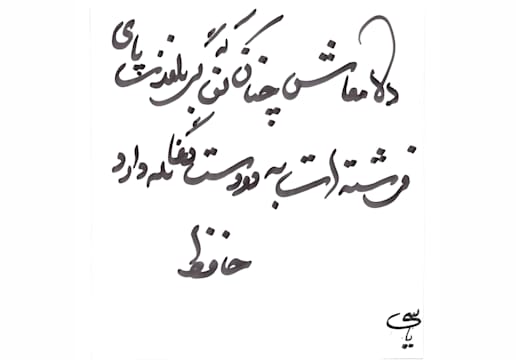 دلا معاش چنان کن که گر بلغزد پای
فرشته ات به دو دست دعا نگه دارد
حافظ
یاسی